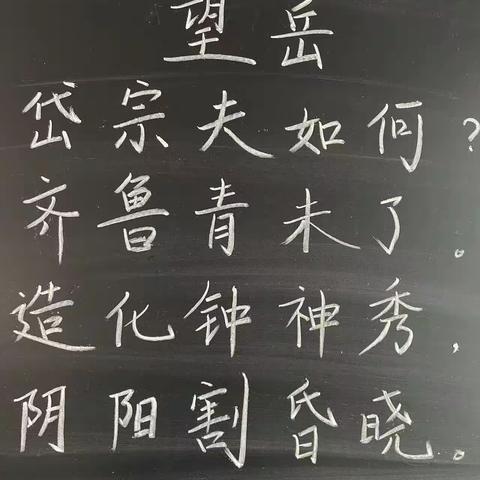 望岳
岱宗夫如何?
齐鲁青未了。
造化钟神秀,
阴阳割昏晓。